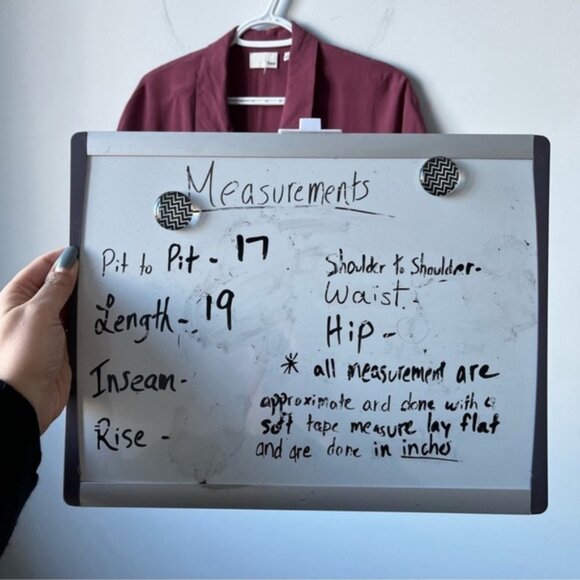 Measurements
Pit to Pit - 17
Length - 19
Inseam -
Rise -
Shoulder to Shoulder -
Waist -
Hip -
* all measurement are
approximate and done with a
soft tape measure lay flat
and are done in inches